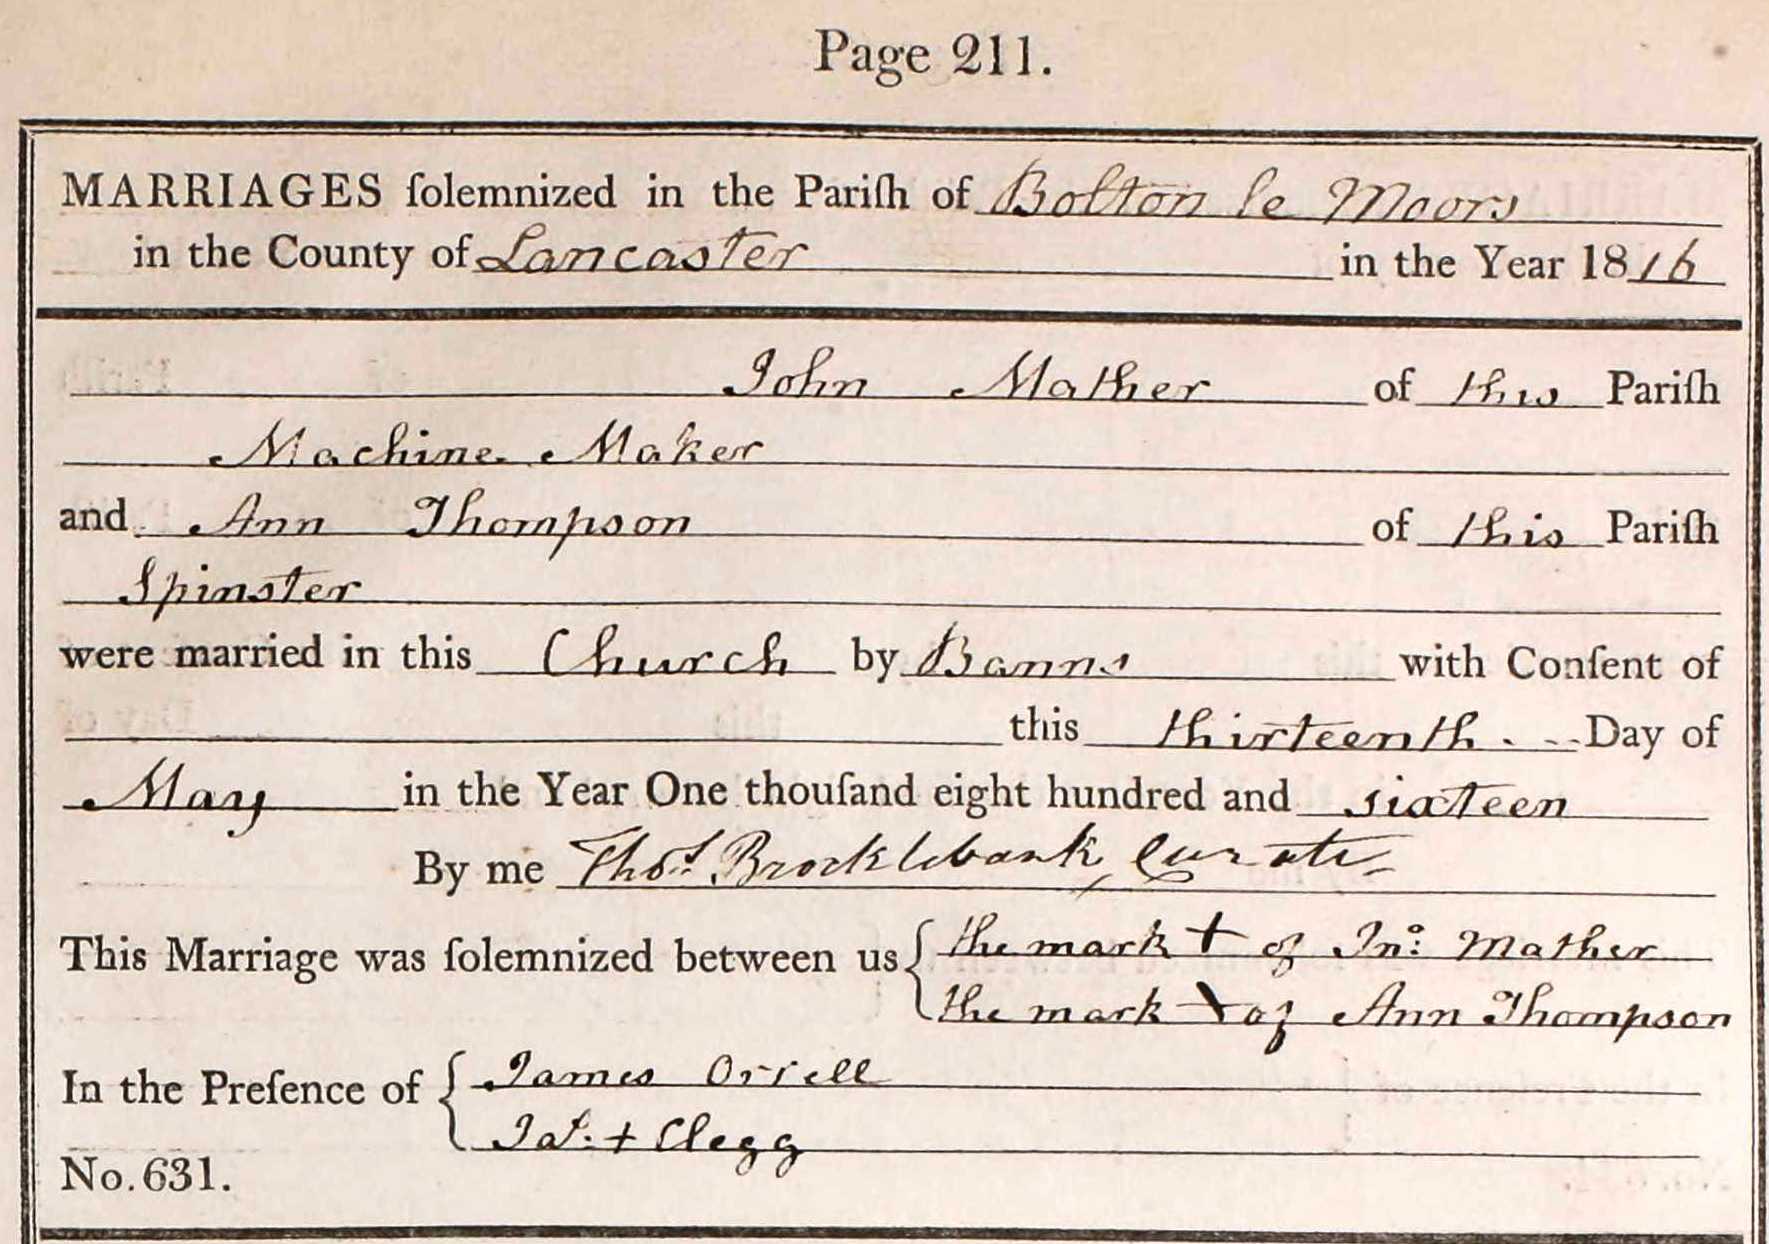 Page 211.
MARRIAGES ſolemnized in the Pariſh of Bolton le Moors
in the County of Lancaster in the Year 1816
John Mather of this Pariſh
Machine Maker
and Ann Thompson of this Pariſh
Spinster
were married in this Church by Banns with Conſent of
this thirteenth Day of
May in the Year One thouſand eight hundred and sixteen
By me Thos. Brocklebank, Curate
This Marriage was ſolemnized between us { the mark + of Jno: Mather
the mark + of Ann Thompson
In the Preſence of { James Orrell
Jas. + Clegg
No. 631.